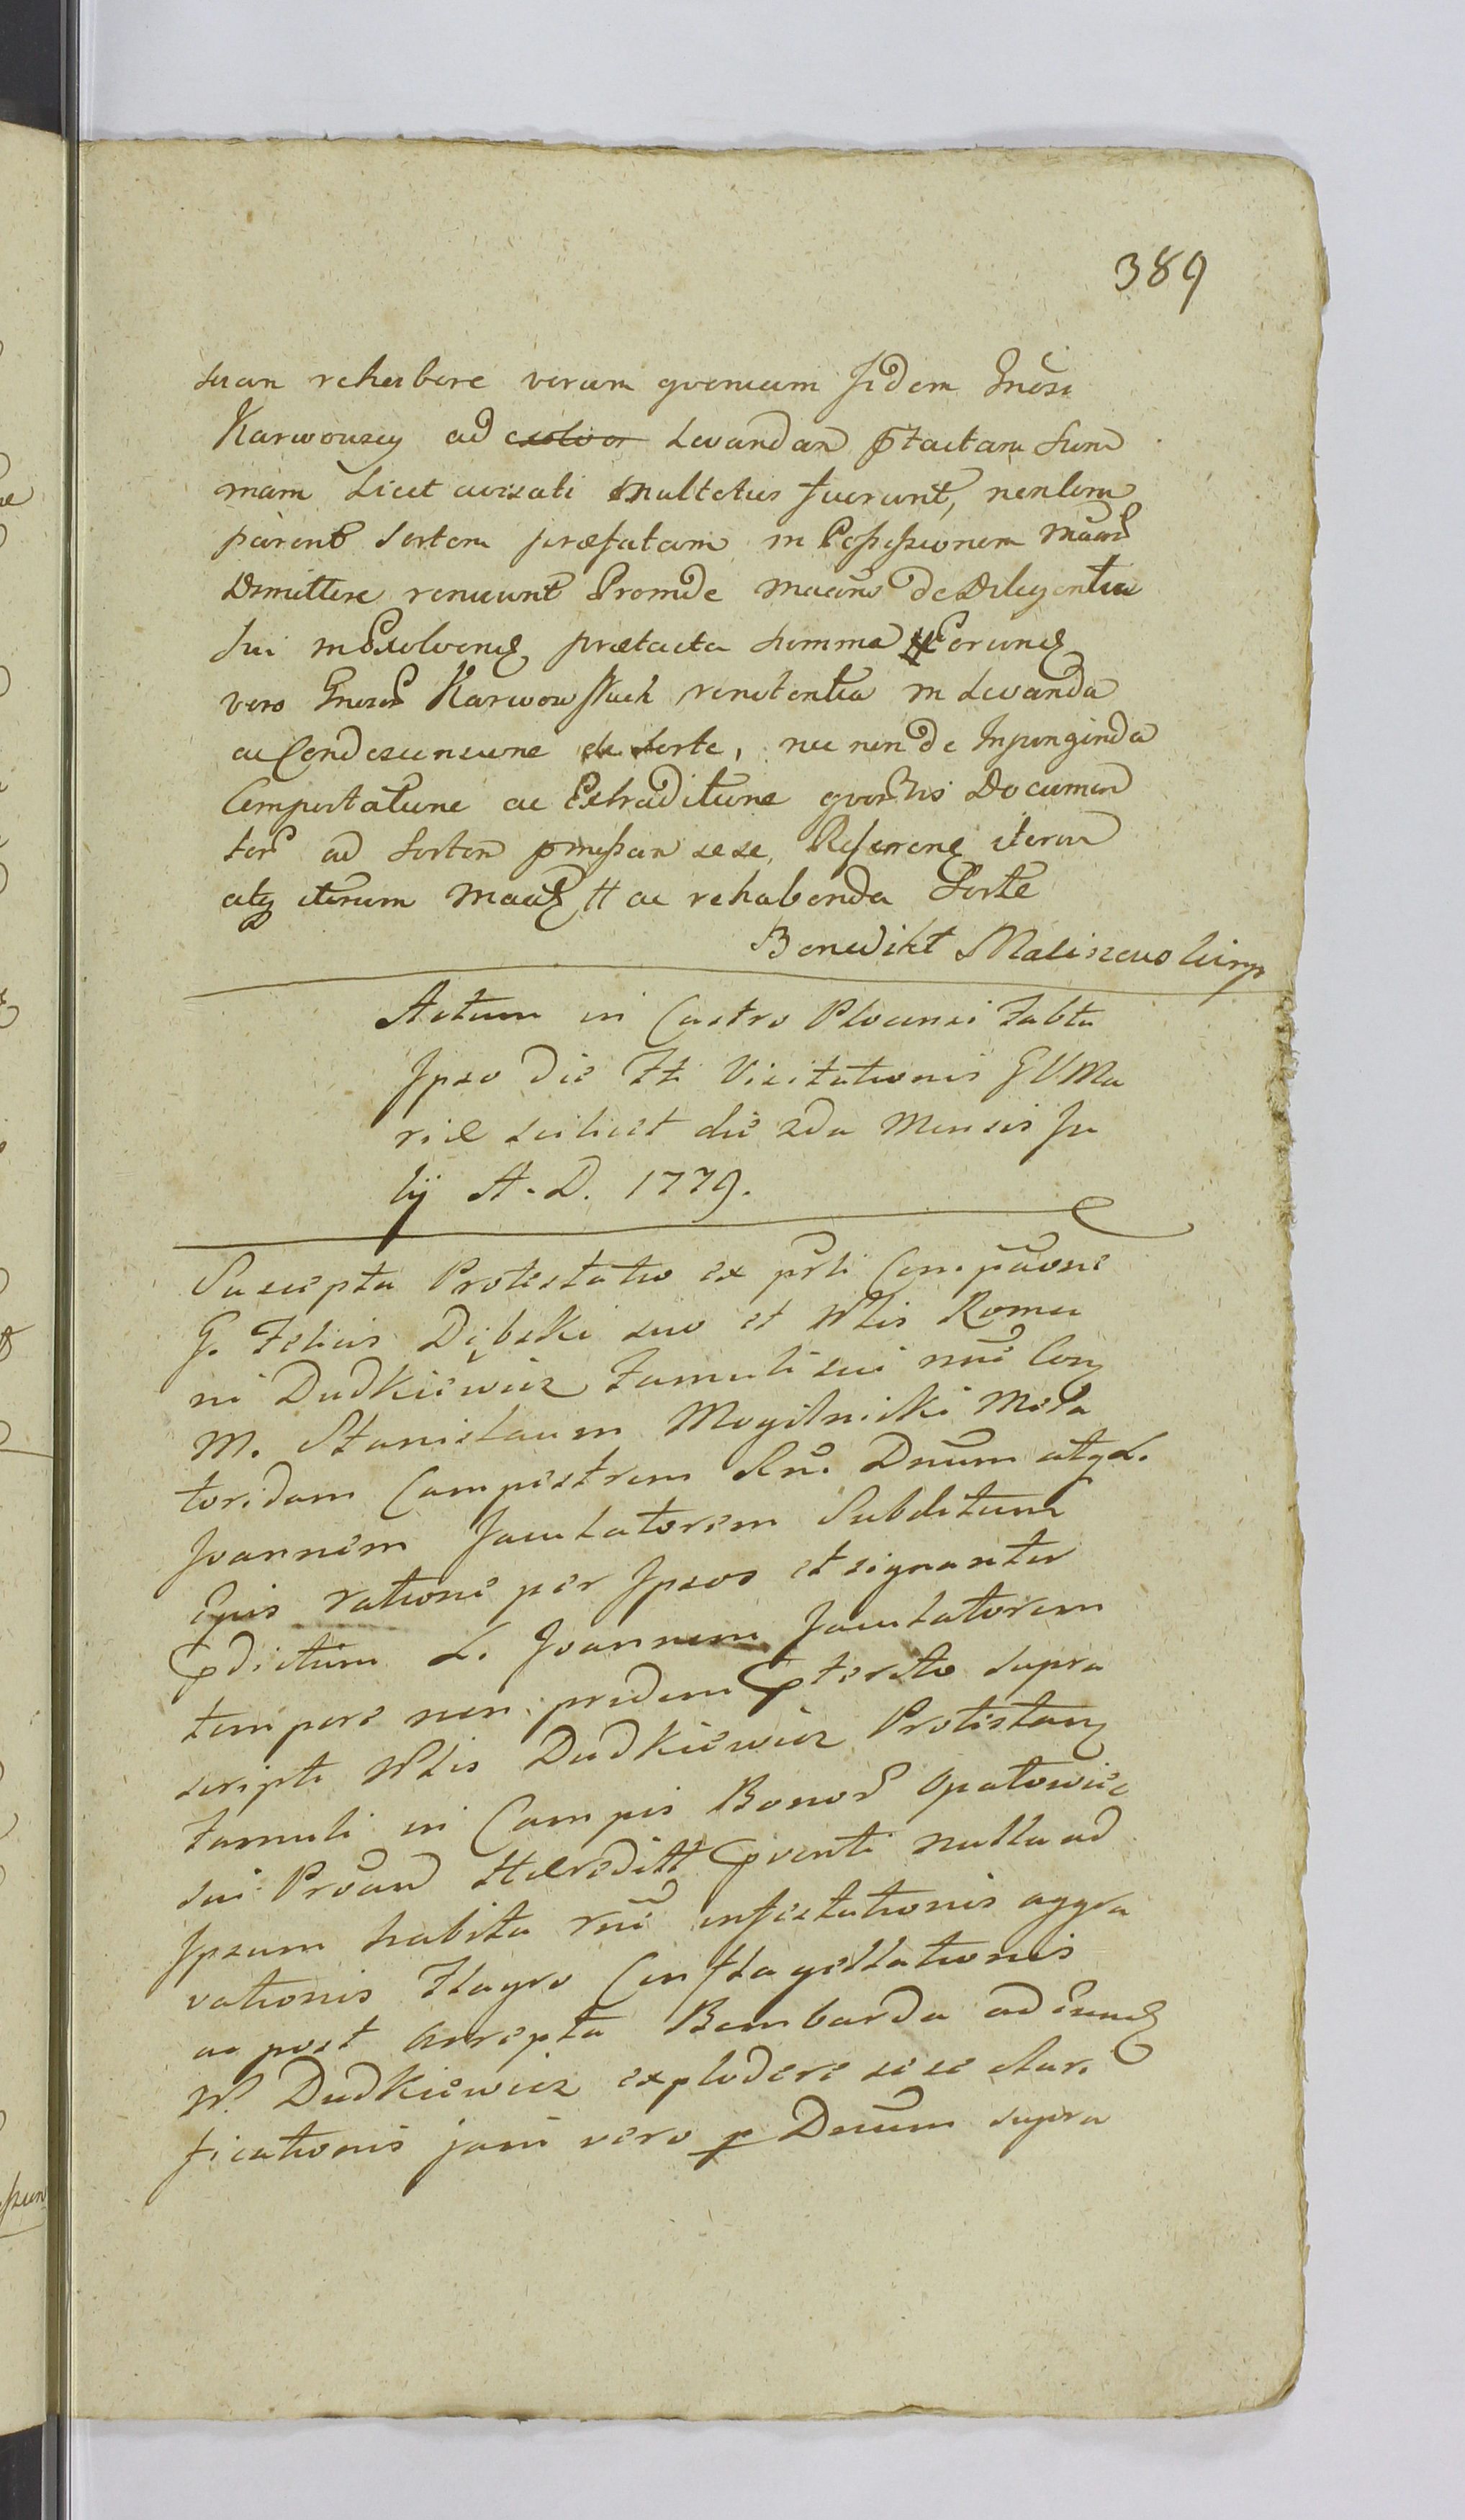 389
suam rehabere verum quoniam Iidem Gnosi
Karwowscy ad exolven Levandam ptactam Sum
mam Licet avisati multoties fuerunt, nonlon
parent Sortem præfatam in Possessionem
Dimittere renuunt Proinde de Diligentia
sui in Exolvend prætacta summa Eorund
vero Karwowskich renitentia in Levanda
ac Condescensione de Sorte, nec non de Injungenda
Comportatione ac Extraditione quorvis Documen
tor ad Sortem pmissam sese Referen iterum
atq iterum ac rehabenda Sorte
Benedikt Maliszewski mp
Actum in Castro Plocensi Sabto
Ipso die Fti Visitationis GVMa
riæ scilicet die 2da Mensis Ju
lij A. D. 1779.
Suscepta Protestatio ex prti Compaone
G. Felicis Dębski suo et Nblis Roma
ni Dudkiewicz Famuli sui nne Cog
M. Stanislaum Mogilnicki
toridam Campestrem Rn. Dnum atq L.
Joannem Jaculatorem Subditum
Ejus ratione per Ipsos et signanter
pdictum L. Joannem Jaculatorem
tempore non pridem pterito supra
scripti Nblis Dudkiewicz Protestan
Famuli in Campis Bonor Opatowiec
sui Hæreditt pventi nulla ad
Ipsum habita rnne infestationis aggra
vationis Flagro Conflagellationis
ac post arrepta Bombarda ad Eund
N. Dudkiewicz explodere sese
ficationis jam vero p Dnum supra